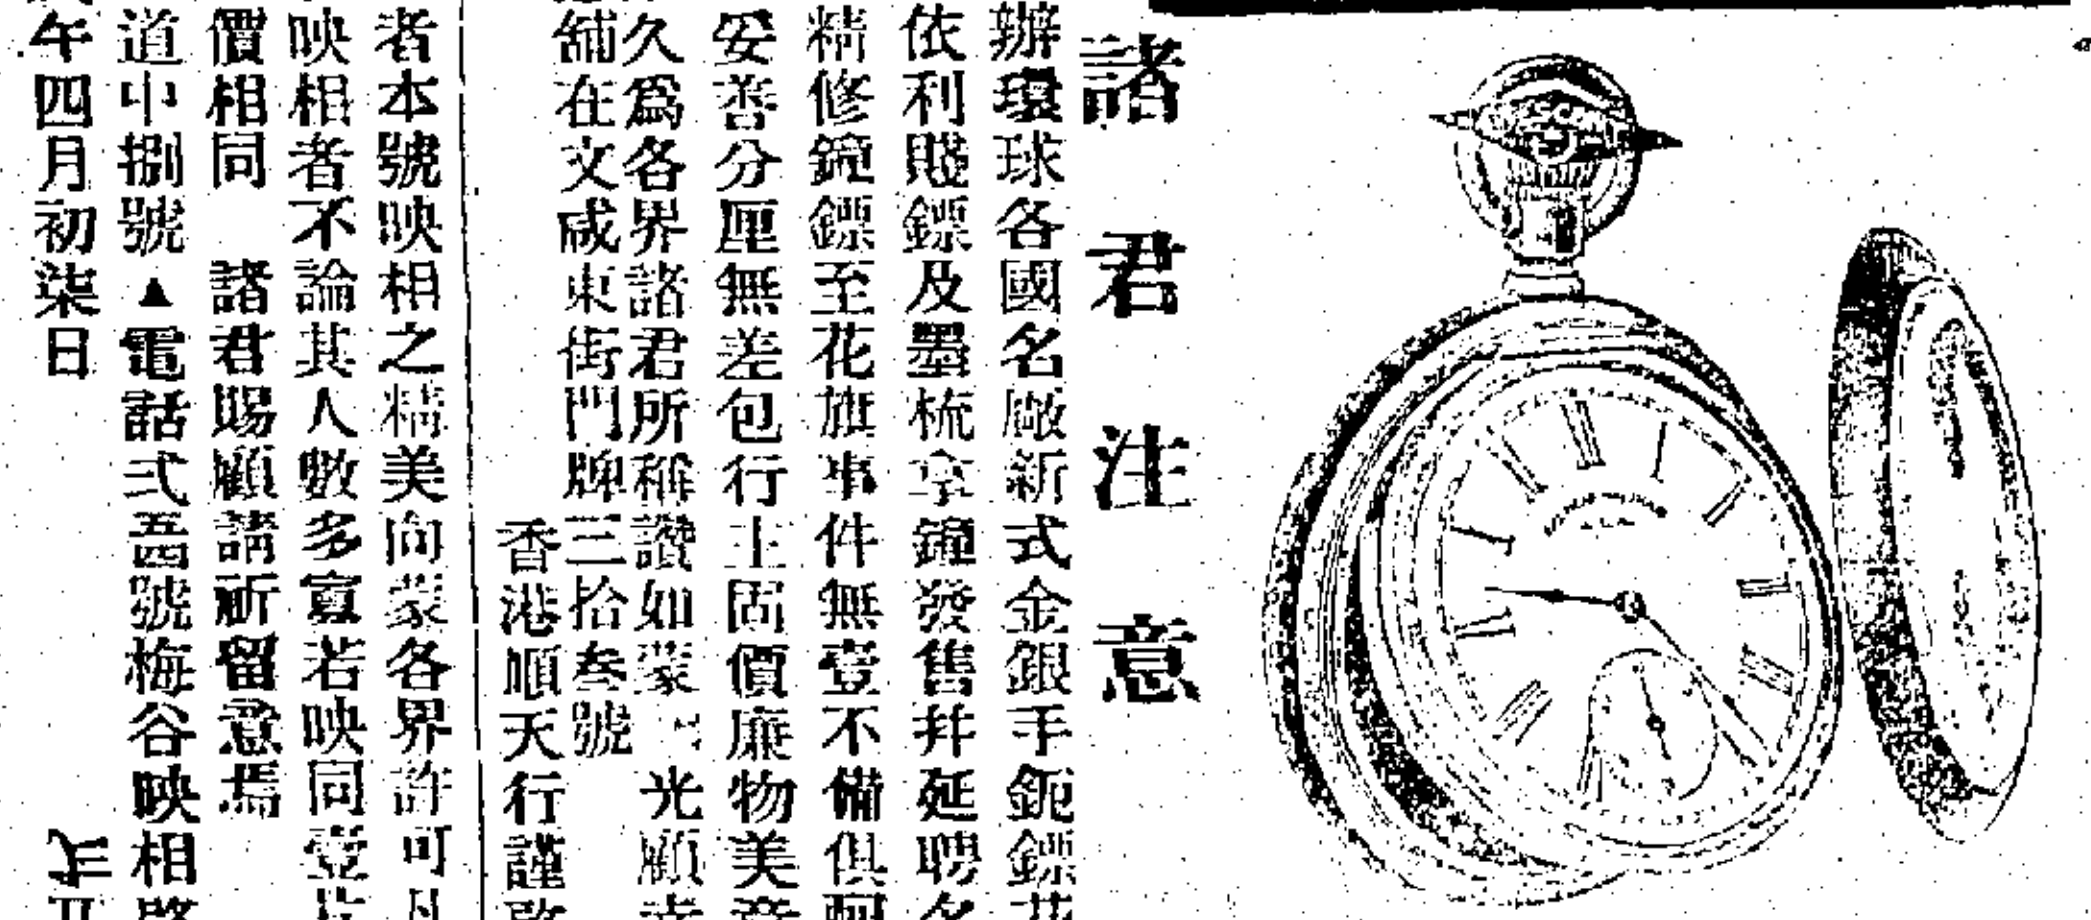 諸君注意
辦環球各國名廠新式金銀手鈪鏢
依利賤鏢及墨梳享鐘發售幷延聘名
精修鐘鏢至花旗事件無壹不備俱
妥善分厘無差包行主固價廉物美
久爲各界諸君所稱讚如蒙 光顧
舖在文咸東街門牌三拾叁號
香港順天行謹啟
者本號映相之精美向蒙各界許可凡
映相者不論其人數多寡若映同壹
價相同 諸君賜顧請祈留意焉
道中捌號▲電話弍五四號梅谷映相
午四月初柒日